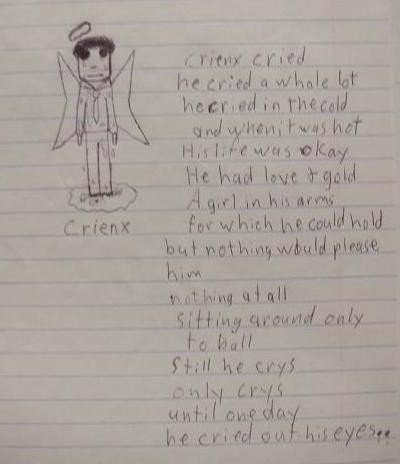 crienx cried
he cried a whole lot
he cried in the cold
and when it was hot
His life was okay
He had love & gold
A girl in his arms
for which he could hold
Crienx
but nothing would please
him
nothing at all
sitting around only
to ball
still he crys
only crys
until one day
he cried out his eyes..